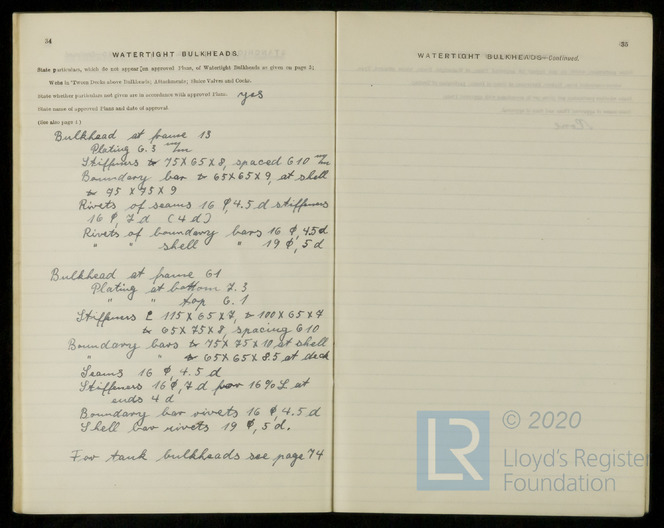 34
WATERTIGHT BULKHEADS.
State particulars, which do not appear on approved Plans, of Watertight Bulkheads as given on page 5;
Webs in 'Tween Decks above Bulkheads; Attachments; Sluice Valves and Cocks.
State whether particulars not given are in accordance with approved Plans. yes
State name of approved Plans and date of approval.
(See also page 4.)
Bulkhead at frame 13
Plating 6.3 m/m
Stiffeners 75 X 65 X 8, spaced 610 m/m
Boundary bar 65 X 65 X 9, at shell
75 X 75 X 9
Rivets of seams 16 ϕ, 4.5 d stiffeners
16 ϕ, 7 d (4 d)
Rivets of boundary bars 16 ϕ, 4.5 d
" " shell " 19 ϕ, 5 d
Bulkhead at frame 61
Plating at bottom 7.3
" " top 6.1
Stiffeners 115 X 65 X 7, 100 X 65 X 7
65 X 75 X 8, spacing 610
Boundary bars 75 X 75 X 10 at shell
" " 65 X 65 X 8.5 at deck
Seams 16 ϕ, 4.5 d
Stiffeners 16 ϕ, 7 d for 16% L at
ends 4 d
Boundary bar rivets 16 ϕ, 4.5 d
Shell bar rivets 19 ϕ, 5 d.
For tank bulkheads see page 74
35
WATERTIGHT BULKHEADS—Continued.
LR
© 2020
Lloyd's Register
Foundation